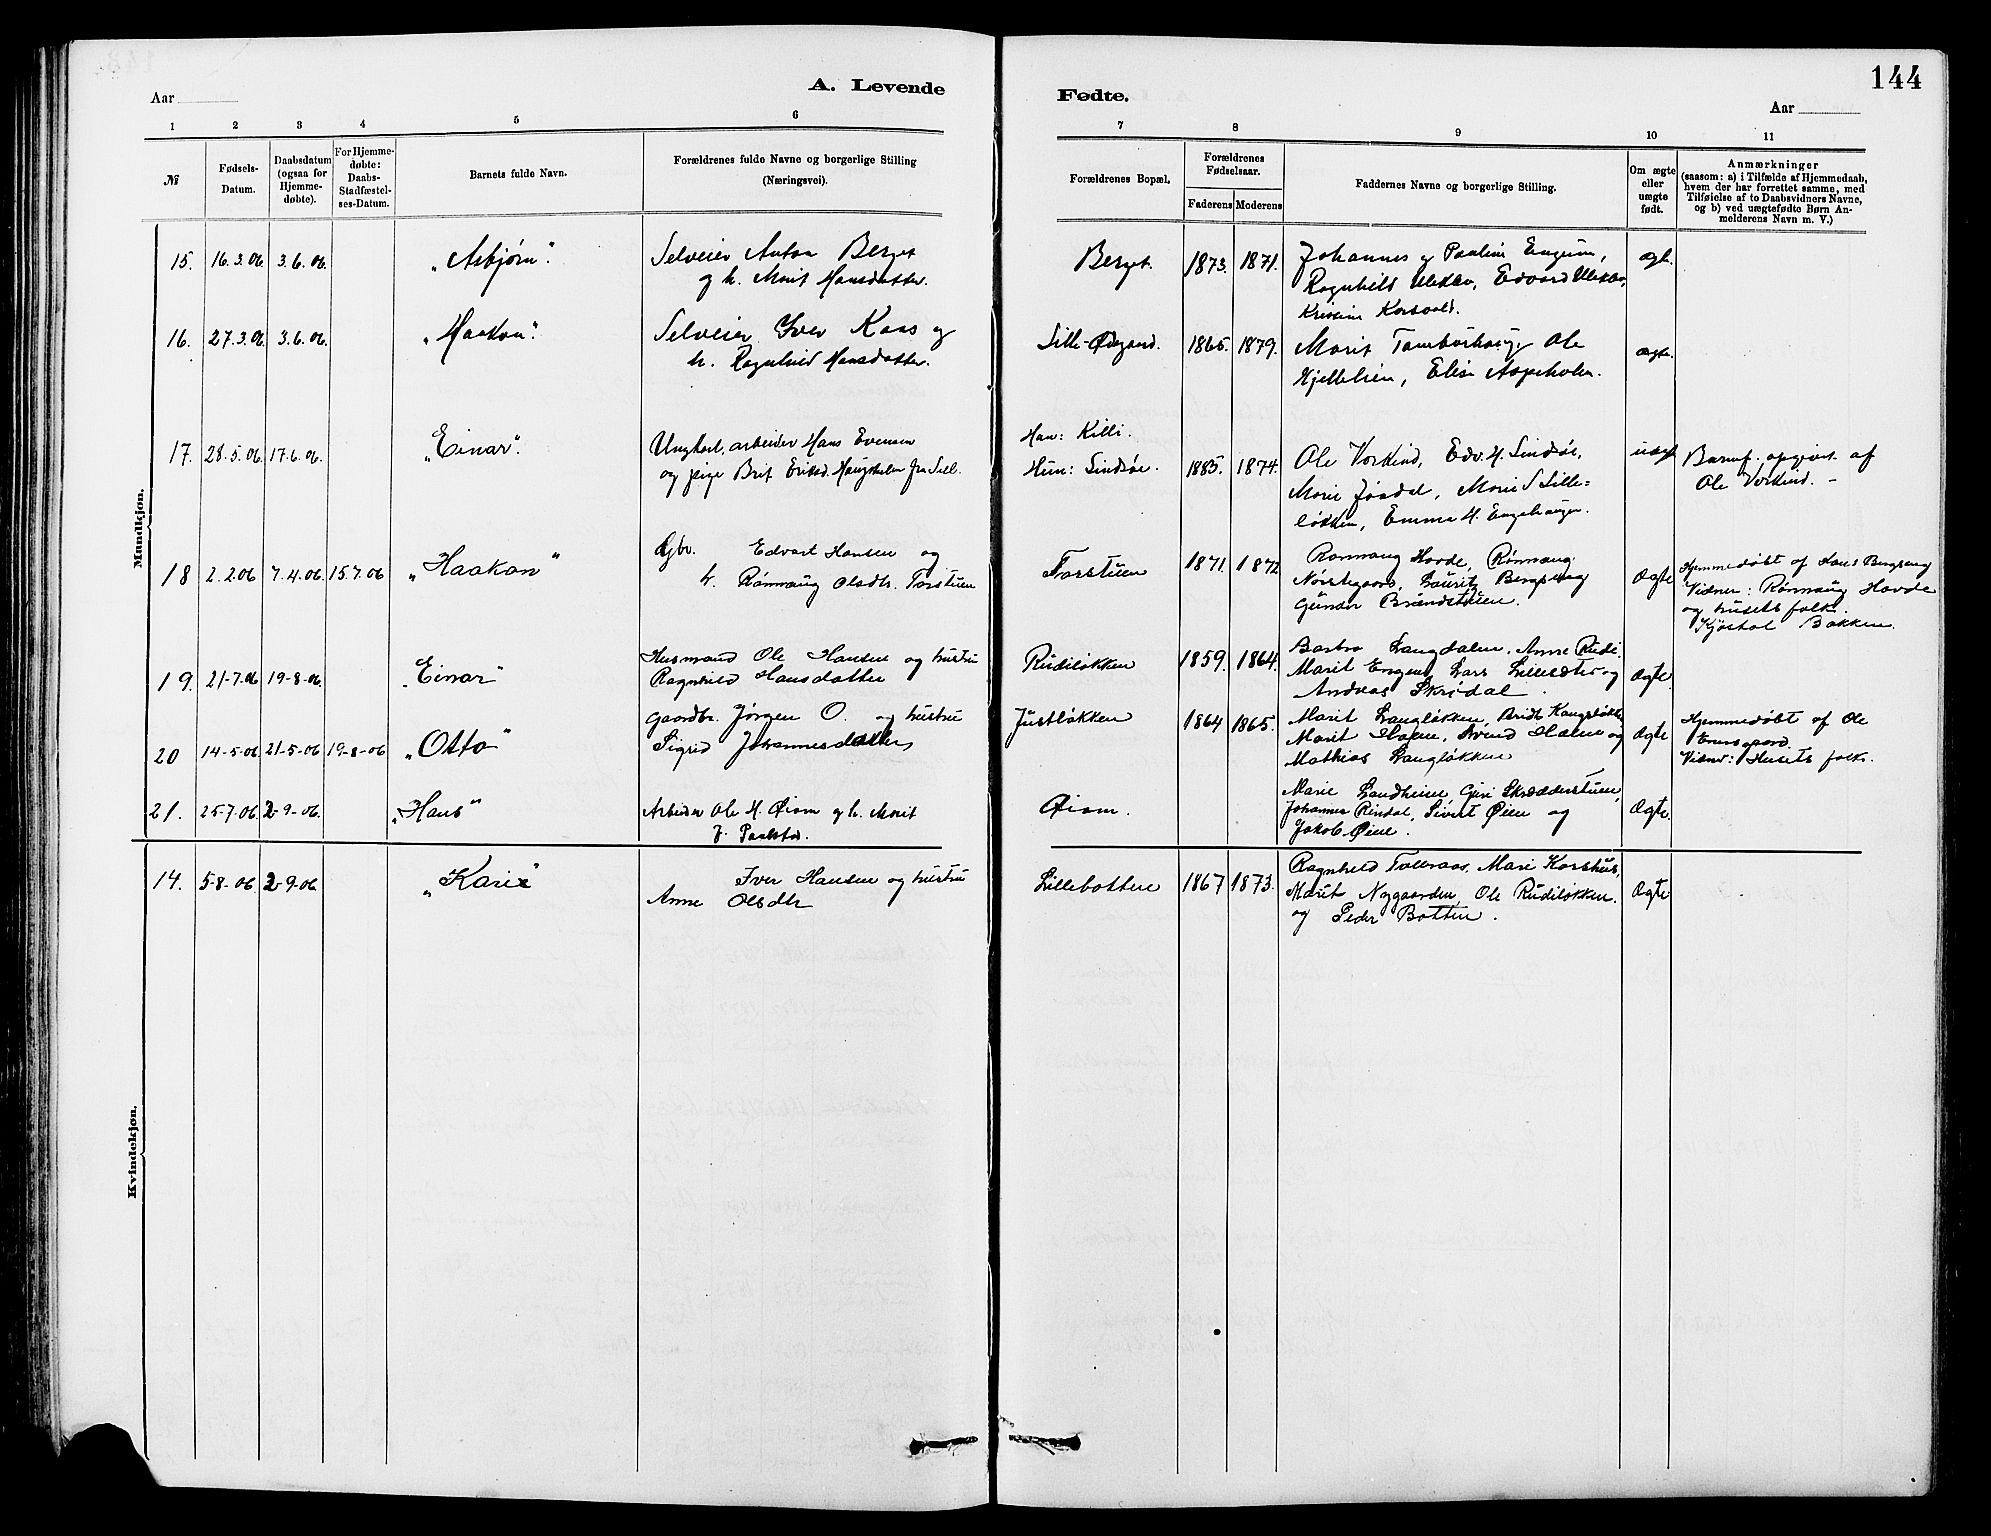 144
Aar
A. Levende
Fødte.
Aar
1 2 3 4 5 6 7 8 9 10 11
№
Fødsels-
Datum.
Daabsdatum
(ogsaa for
Hjemme-
døbte).
For Hjemme-
døbte:
Daabs-
Stadfæstel-
ses-Datum.
Barnets fulde Navn.
Forældrenes fulde Navne og borgerlige Stilling
(Næringsvei).
Forældrenes Bopæl.
Forældrenes
Fødselsaar.
Faderens Moderens
Faddernes Navne og borgerlige Stilling.
Om ægte
eller
uægte
født.
Anmærkninger
(saasom: a) i Tilfælde af Hjemmedaab,
hvem der har forrettet samme, med
Tilføielse af to Daabsvidners Navne,
og b) ved uægtefødte Børn An-
melderens Navn m. V.)
Mandkjøn.
15. 16.3.06. 3.6.06. „Asbjørn". Selveier Anton Berget
og h. Marit Hansdatter.
Berget. 1873. 1871. Johannes og Pauline Engum,
Ragnhild Uleklev, Edvard Uleklev,
Kristine Korsvold.
ægt.
16. 27.3.06. 3.6.06. „Haakon". Selveier Iver Kaas og
h. Ragnhild Hansdatter.
Lille-Ødegaard. 1865. 1879. Marit Tamburhaug, Ole
Hjellelien, Elise Aspeholen.
ægte.
17. 28.5.06. 17.6.06. „Einar". Ungkarl, arbeider Hans Evensen
og pige Brit Eriksd. Haughalen fra Lell.
Han: Killi.
Hun: Lindsøe. 1885. 1874. Ole Vorkind, Edv. H. Lindsøe,
Marie Jøndal, Marie S Lille=
løkken, Emma H. Engehaugen.
uægt
Barnef. opgivet af
Ole Vorkind. –
18 2.2.06 7.4.06 15.7.06 „Haakon" Gbr. Edvart Hansen og
h. Rønnaug Olsdtr. Torstuen
Torstuen 1871. 1872 Rønnaug Hovde, Rønnaug
Norstegaard, Lauritz Bergseng
Gunder Brændstuen.
Ægte
Hjemmedøbt af Lars Bergseng
Vidner: Rønnaug Hovde
og husets folk.
Kjøstol Bakken.
19. 21-7.06 19-8-06. „Einar" Husmand Ole Hansen og hustru
Ragnhild Hansdatter
Rudiløkken 1859. 1864. Barbro Langdalen, Anne Rudi.
Marit Engen, Lars Lillesæter og
Andreas Skridal.
Ægte.
20 14-5-06. 21-5-06 19-8-06 „Otto" Gaardbr. Jørgen O. og hustru
Sigrid Johannesdatter
Justløkken 1864 1865. Marit Langløkken, Bridt Kangsløkken
Marit Haken, Svend Haken og
Mathias Langløkken
Ægte
Hjemmedøbt af Ole
Enersgaard.
Vidner: Husets folk.
21. 25-7.06 2-9-06. „Hans" Arbeider Ole H. Øiom og h. Marit
J. Paalstad.
Øiom. Marie Landheim, Guri Skrædderstuen,
Johannes Rindal, Sivert Øien og
Jakob Øien.
Ægte.
Kvindekjøn.
14. 5-8-06 2-9-06. „Kari" Iver Hansen og hustru
Anne Olsdtr
Lillebotten 1867 1873. Ragnhild Tollraas, Mari Korshus,
Marit Nygaarden, Ole Rudiløkken.
og Peder Botten.
Ægte.